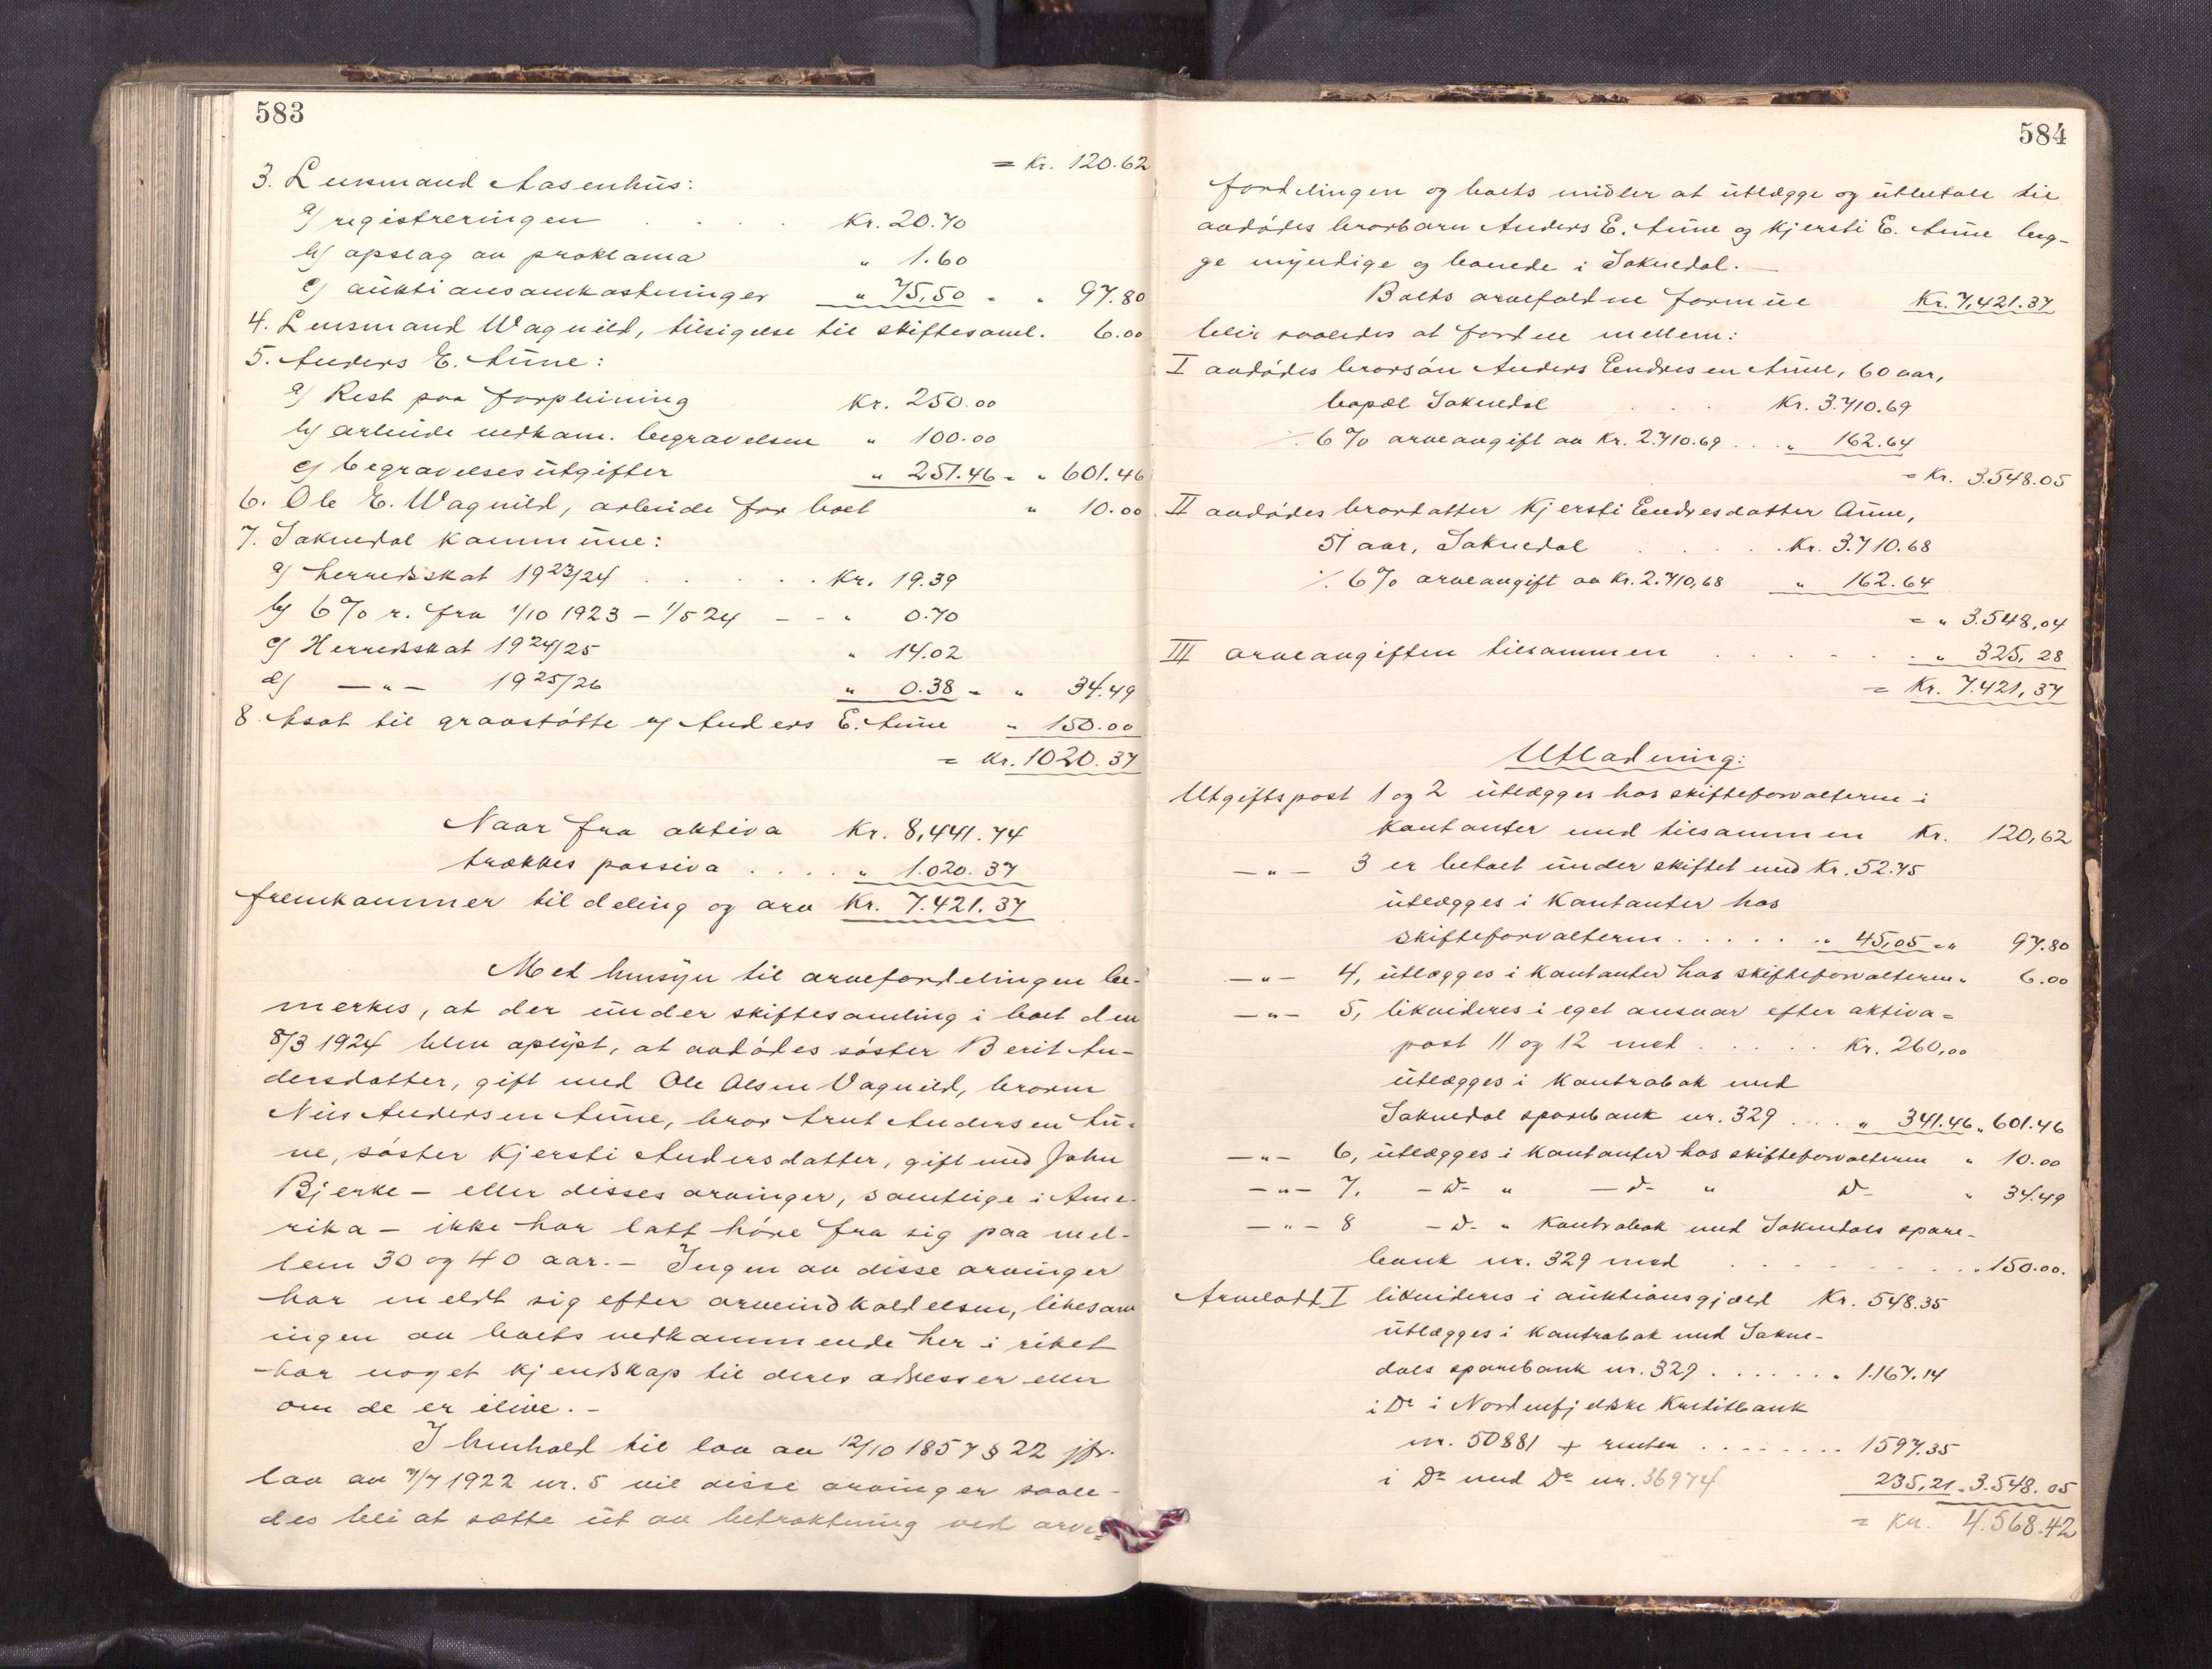 583
= Kr. 120.62
3. Lensmand Aasenhus:
a) registreringen . . . Kr. 20.70
b) opslag av proklama " 1.60
c) auktionsomkostninger " 75,50 = " 97.80
4. Lensmand Wagnild, tilsigelse til skiftesaml. 6.00
5. Anders E. Aune:
a) Rest paa forpleining Kr. 250.00
b) arbeide vedkom. begravelsen " 100.00
c) begravelsesutgifter " 251.46 = " 601.46
6. Ole E. Wagnild, arbeide for boet " 10.00
7. Soknedal kommune:
a) herredsskat 1923/24 . . . . . Kr. 19.39
b) 6% r. fra 1/10 1923 – 1/5 24 – – " 0.70
c) Herredsskat 1924/25 " 14.02
d) —"— 1925/26 " 0.38 = " 34.49
8. Avsat til gravstøtte v/ Anders E. Aune " 150.00
= Kr. 1020.37
Naar fra aktiva Kr. 8,441.74
trækkes passiva . . . . " 1.020.37
fremkommer til deling og arv Kr. 7.421.37
Med hensyn til arvefordelingen be-
merkes, at der under skiftesamling i boet den
8/3 1924 blev oplyst, at avdødes søster Berit An-
dersdatter, gift med Ole Olsen Vagnild, broren
Nils Andersen Aune, bror Arnt Andersen Au-
ne, søster Kjersti Andersdatter, gift med John
Bjerke – eller disses arvinger, samtlige i Ame-
rika – ikke har latt høre fra sig paa mel-
lem 30 og 40 aar. – Ingen av disse arvinger
har meldt sig efter arveindkaldelsen, likesom
ingen av boets vedkommende her i riket
har noget kjendskap til deres adresser eller
om de er ilive. –
I henhold til lov av 12/10 1857 § 22 jfr.
lov av 7/7 1922 nr. 5 vil disse arvinger saale-
des bli at sætte ut av betraktning ved arve=
584
fordelingen og boets midler at utlægge og utbetale til
avdødes brorbarn Anders E. Aune og Kjersti E. Aune beg-
ge myndige og boende i Soknedal. —
Boets arvefaldne formue Kr. 7,421.37
blir saaledes at fordele mellem:
I avdødes brorsøn Anders Eendresen Aune, 60 aar,
bopæl Soknedal . . . Kr. 3.710.69
÷ 6% arveavgift av Kr. 2.710.69 . . . " 162.64
= Kr. 3.548.05
II avdødes brordatter Kjersti Eendresdatter Aune,
51 aar, Soknedal . . . . Kr. 3.710.68
÷ 6% arveavgift av Kr. 2.710,68 " 162.64
= " 3.548,04
III arveavgiften tilsammen . . . . . . " 325,28
= Kr. 7.421,37
Utlodning:
Utgiftspost 1 og 2 utlægges hos skifteforvalteren i
kontanter med tilsammen Kr. 120,62
—"— 3 er betalt under skiftet med Kr. 52.75
utlægges i kontanter hos
skifteforvalteren . . . . . " 45,05 = " 97.80
—"— 4, utlægges i kontanter hos skifteforvalteren " 6.00
—"— 5, likvideres i eget ansvar efter aktiva=
post 11 og 12 med . . . . . Kr. 260,00
utlægges i kontrabok med
Soknedal sparebank nr. 329 . . . " 341.46 " 601.46
—"— 6, utlægges i kontanter hos skifteforvalteren " 10.00
—"— 7. – d– " – d– " d– " 34.49
—"— 8 – d– " kontrabok med Soknedals spare-
bank nr. 329 med . . . . . . . . " 150.00.
Arvelodd I likvideres i auktionsgjæld Kr. 548.35
utlægges i kontrabok med Sokne-
dals sparebank nr. 329 . . . . . . " 1.167.14
i Do i Nordenfjeldske Kreditbank
nr. 50881 + renter . . . . . . . . 1597.35
i Do med Do nr. 36974 235,21 " 3.548.05
= Kr. 4.568.42